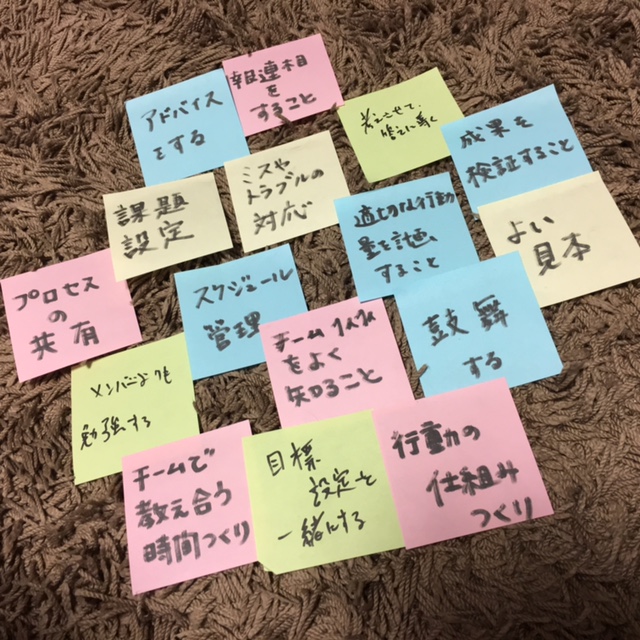 報連相
を
すること
アドバイス
をする
成果を
検証すること
ミスや
トラブルの
対応
課題
設定
量を計画
すること
よい
見本
プロセス
の
共有
スケジュール
管理
鼓舞
する
チーム
をよく
知ること
メンバーよりも
勉強する
チームで
教え合う
時間つくり
目標
設定を
一緒にする
行動の
仕組み
つくり